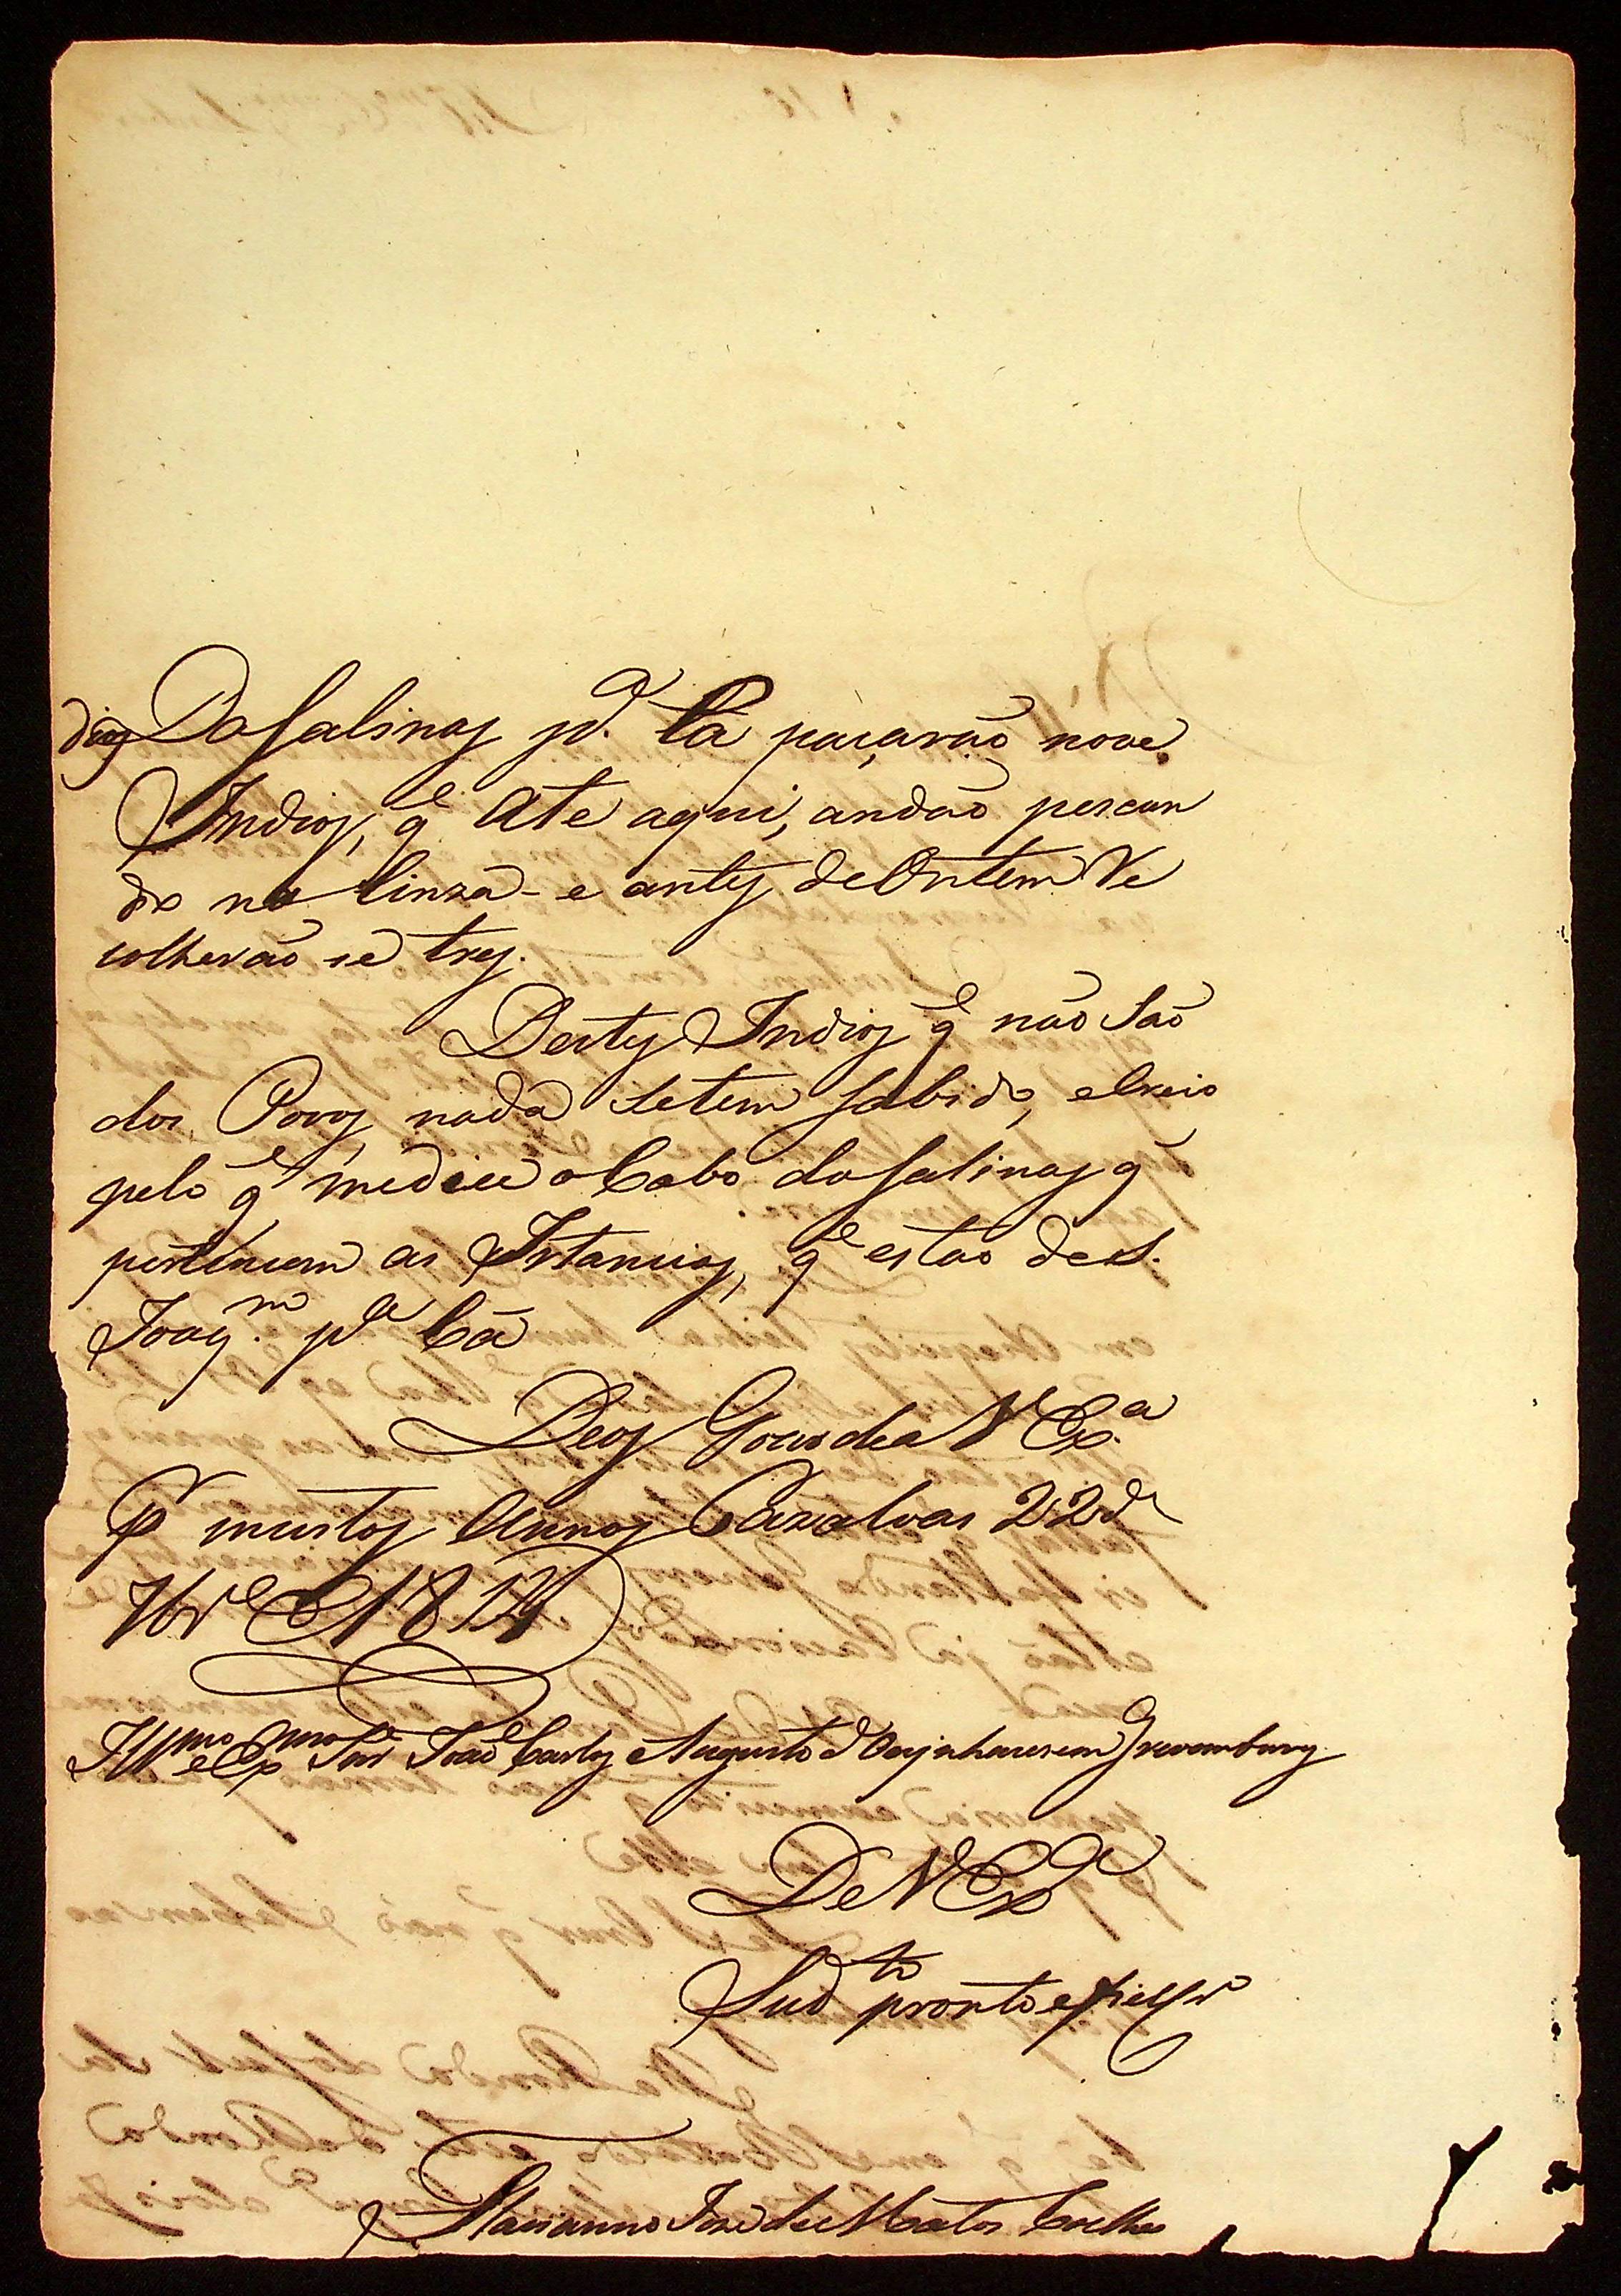 dias Dasalinas pª. Cá paçarão nove
Indios, qᵉ Ate aqui, andão pescan
do na Cinza - e antes deOntem Re
colherão se tres.
Destes Indios qᵉ não São
dos Povos nada Setem Sabido, eCreio
pelo qᵉ medice oCabo daSalinas q
pertencem as Estancias, qᵉ estão deS.
Joaqᵐ. pª Cá
Deos Goarde a V Exª
pʳ muitos Annos Cazalvas 22 dᵉ
7bʳᵉ 1812
Illᵐᵒ e Exᵐᵒ Snr João Carlos Augusto d'Oeynhausem Grevemburg.
De V Exª
Subᵗᵒ pronto e fiel
Marianno Jose de Matos Coelho